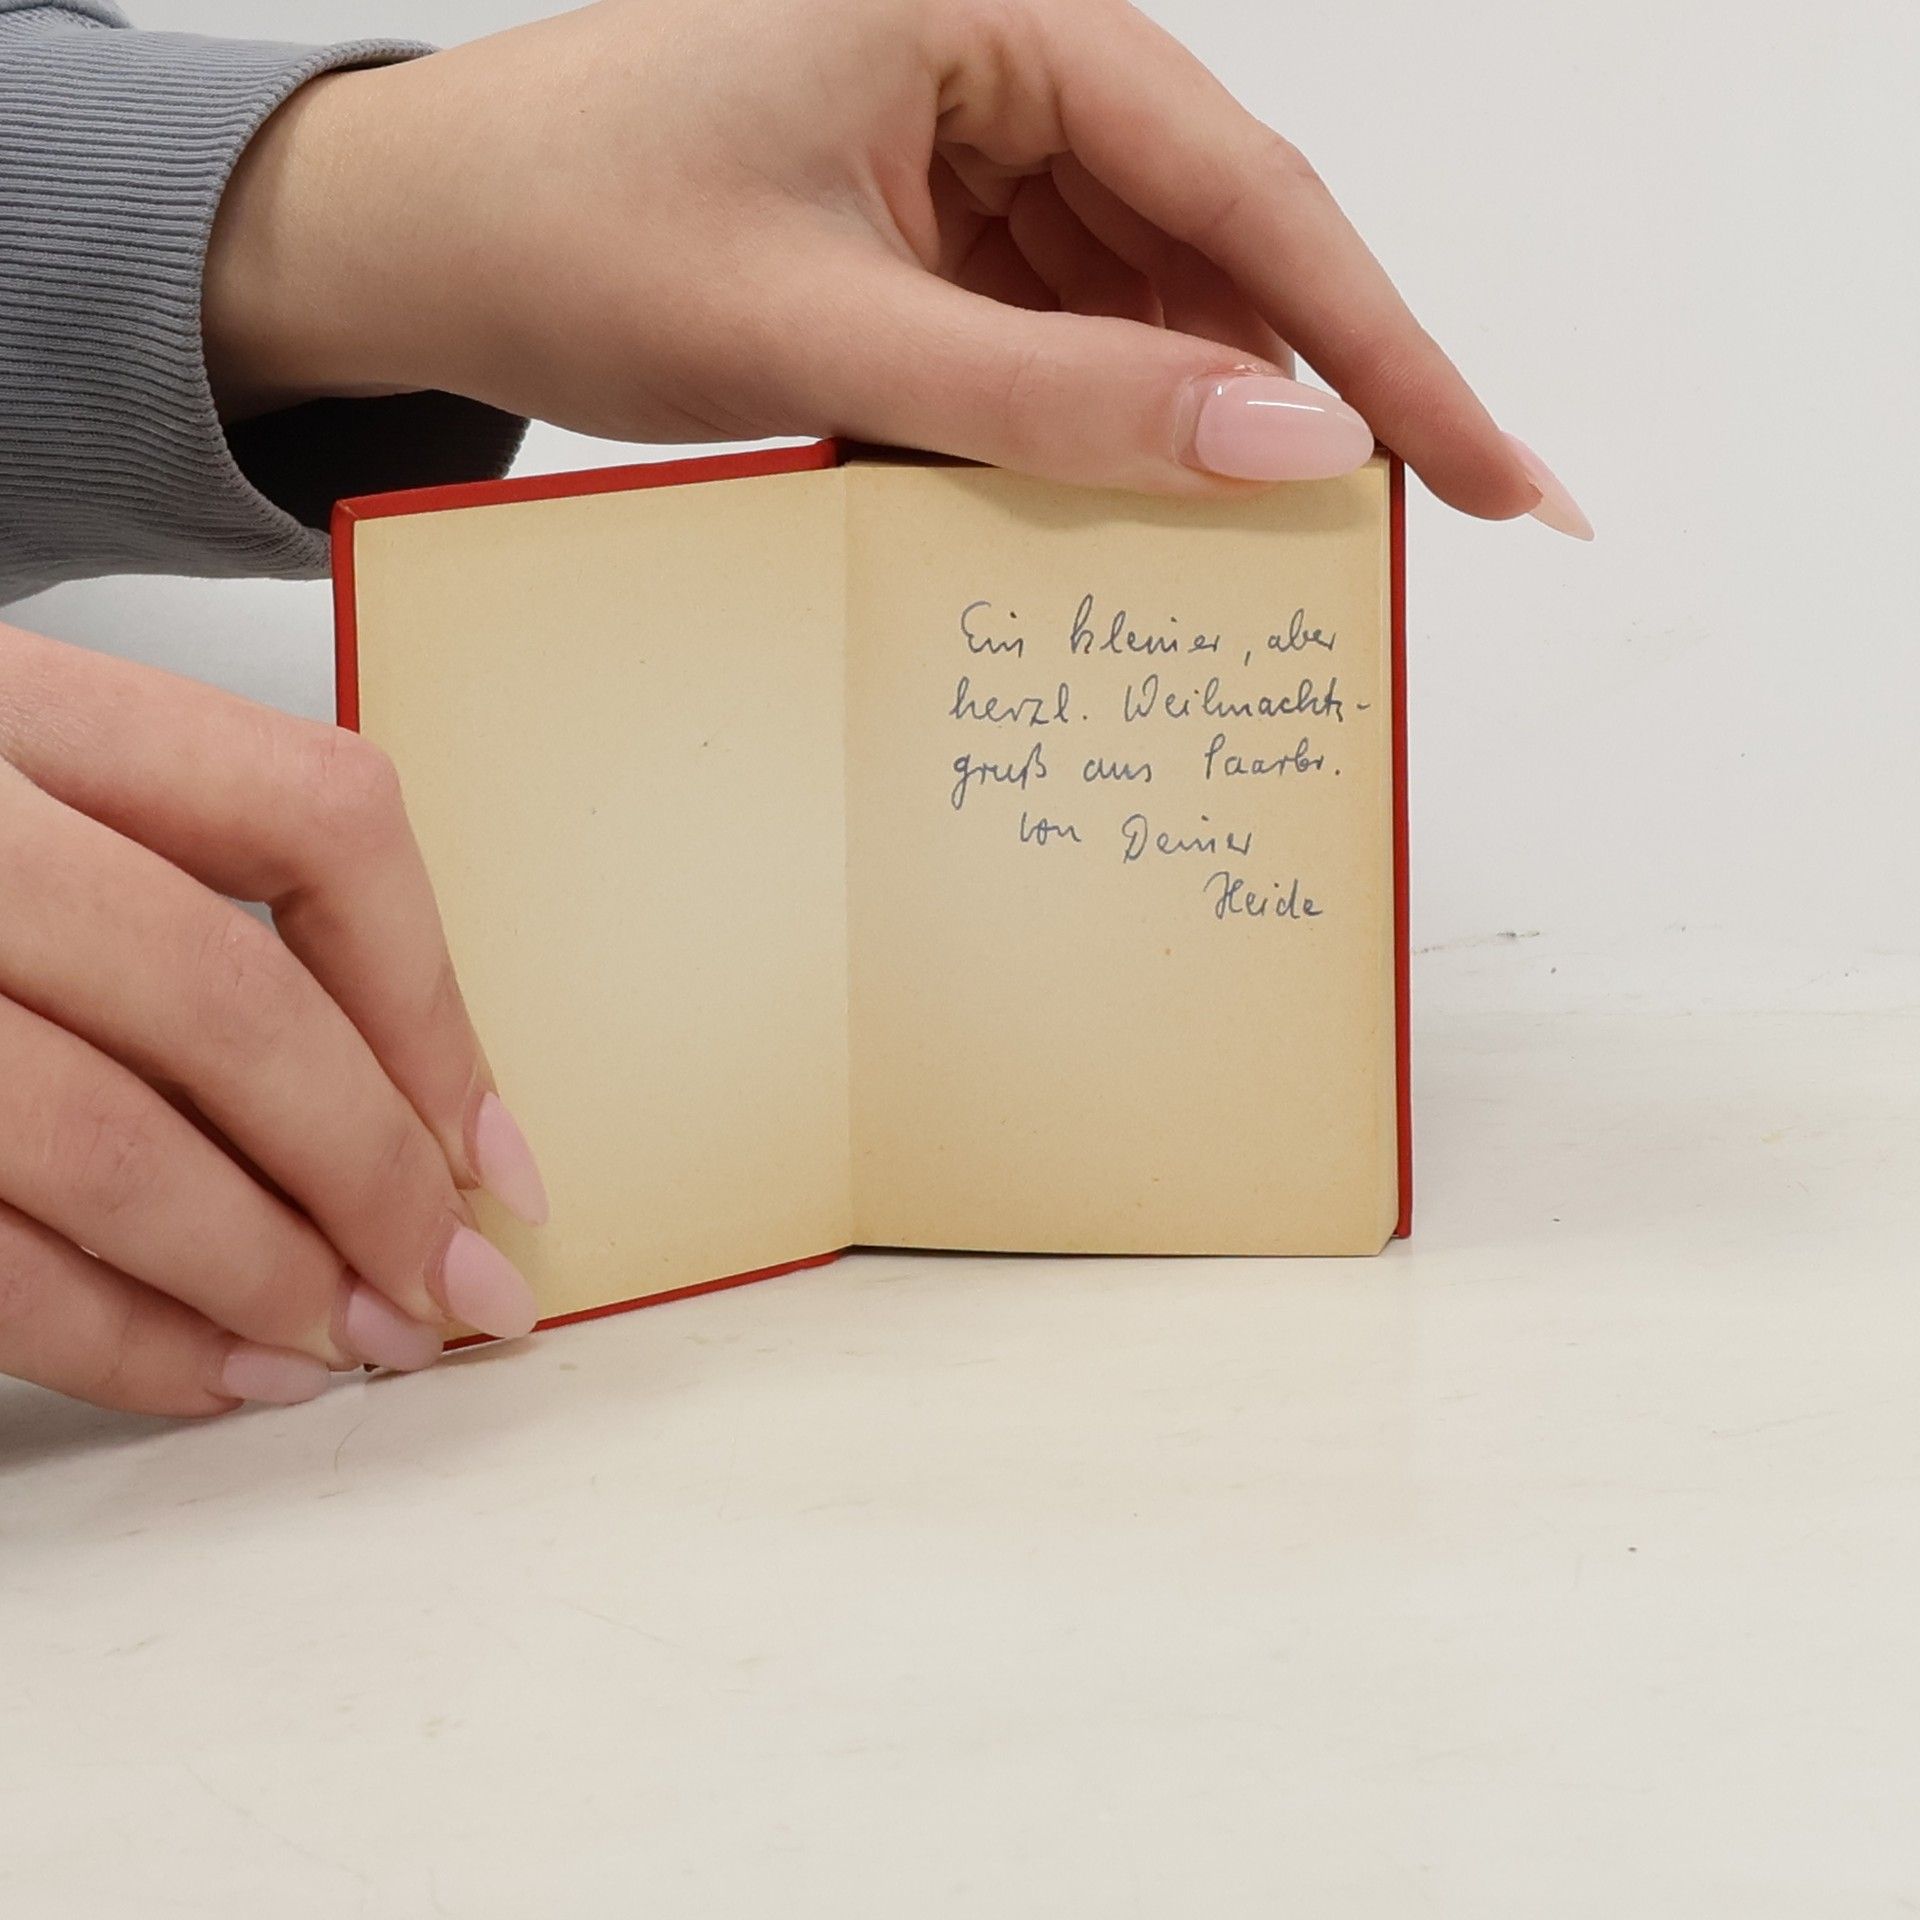 Ein kleiner, aber
herzl. Weihnachts-
gruß aus Saarbr.
von Deiner
Heide